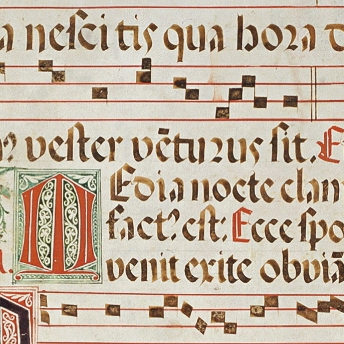 a nescitis qua hora d
vester vēturus sit. E
Media nocte clam
fact? est. Ecce spo
venit exite obviā